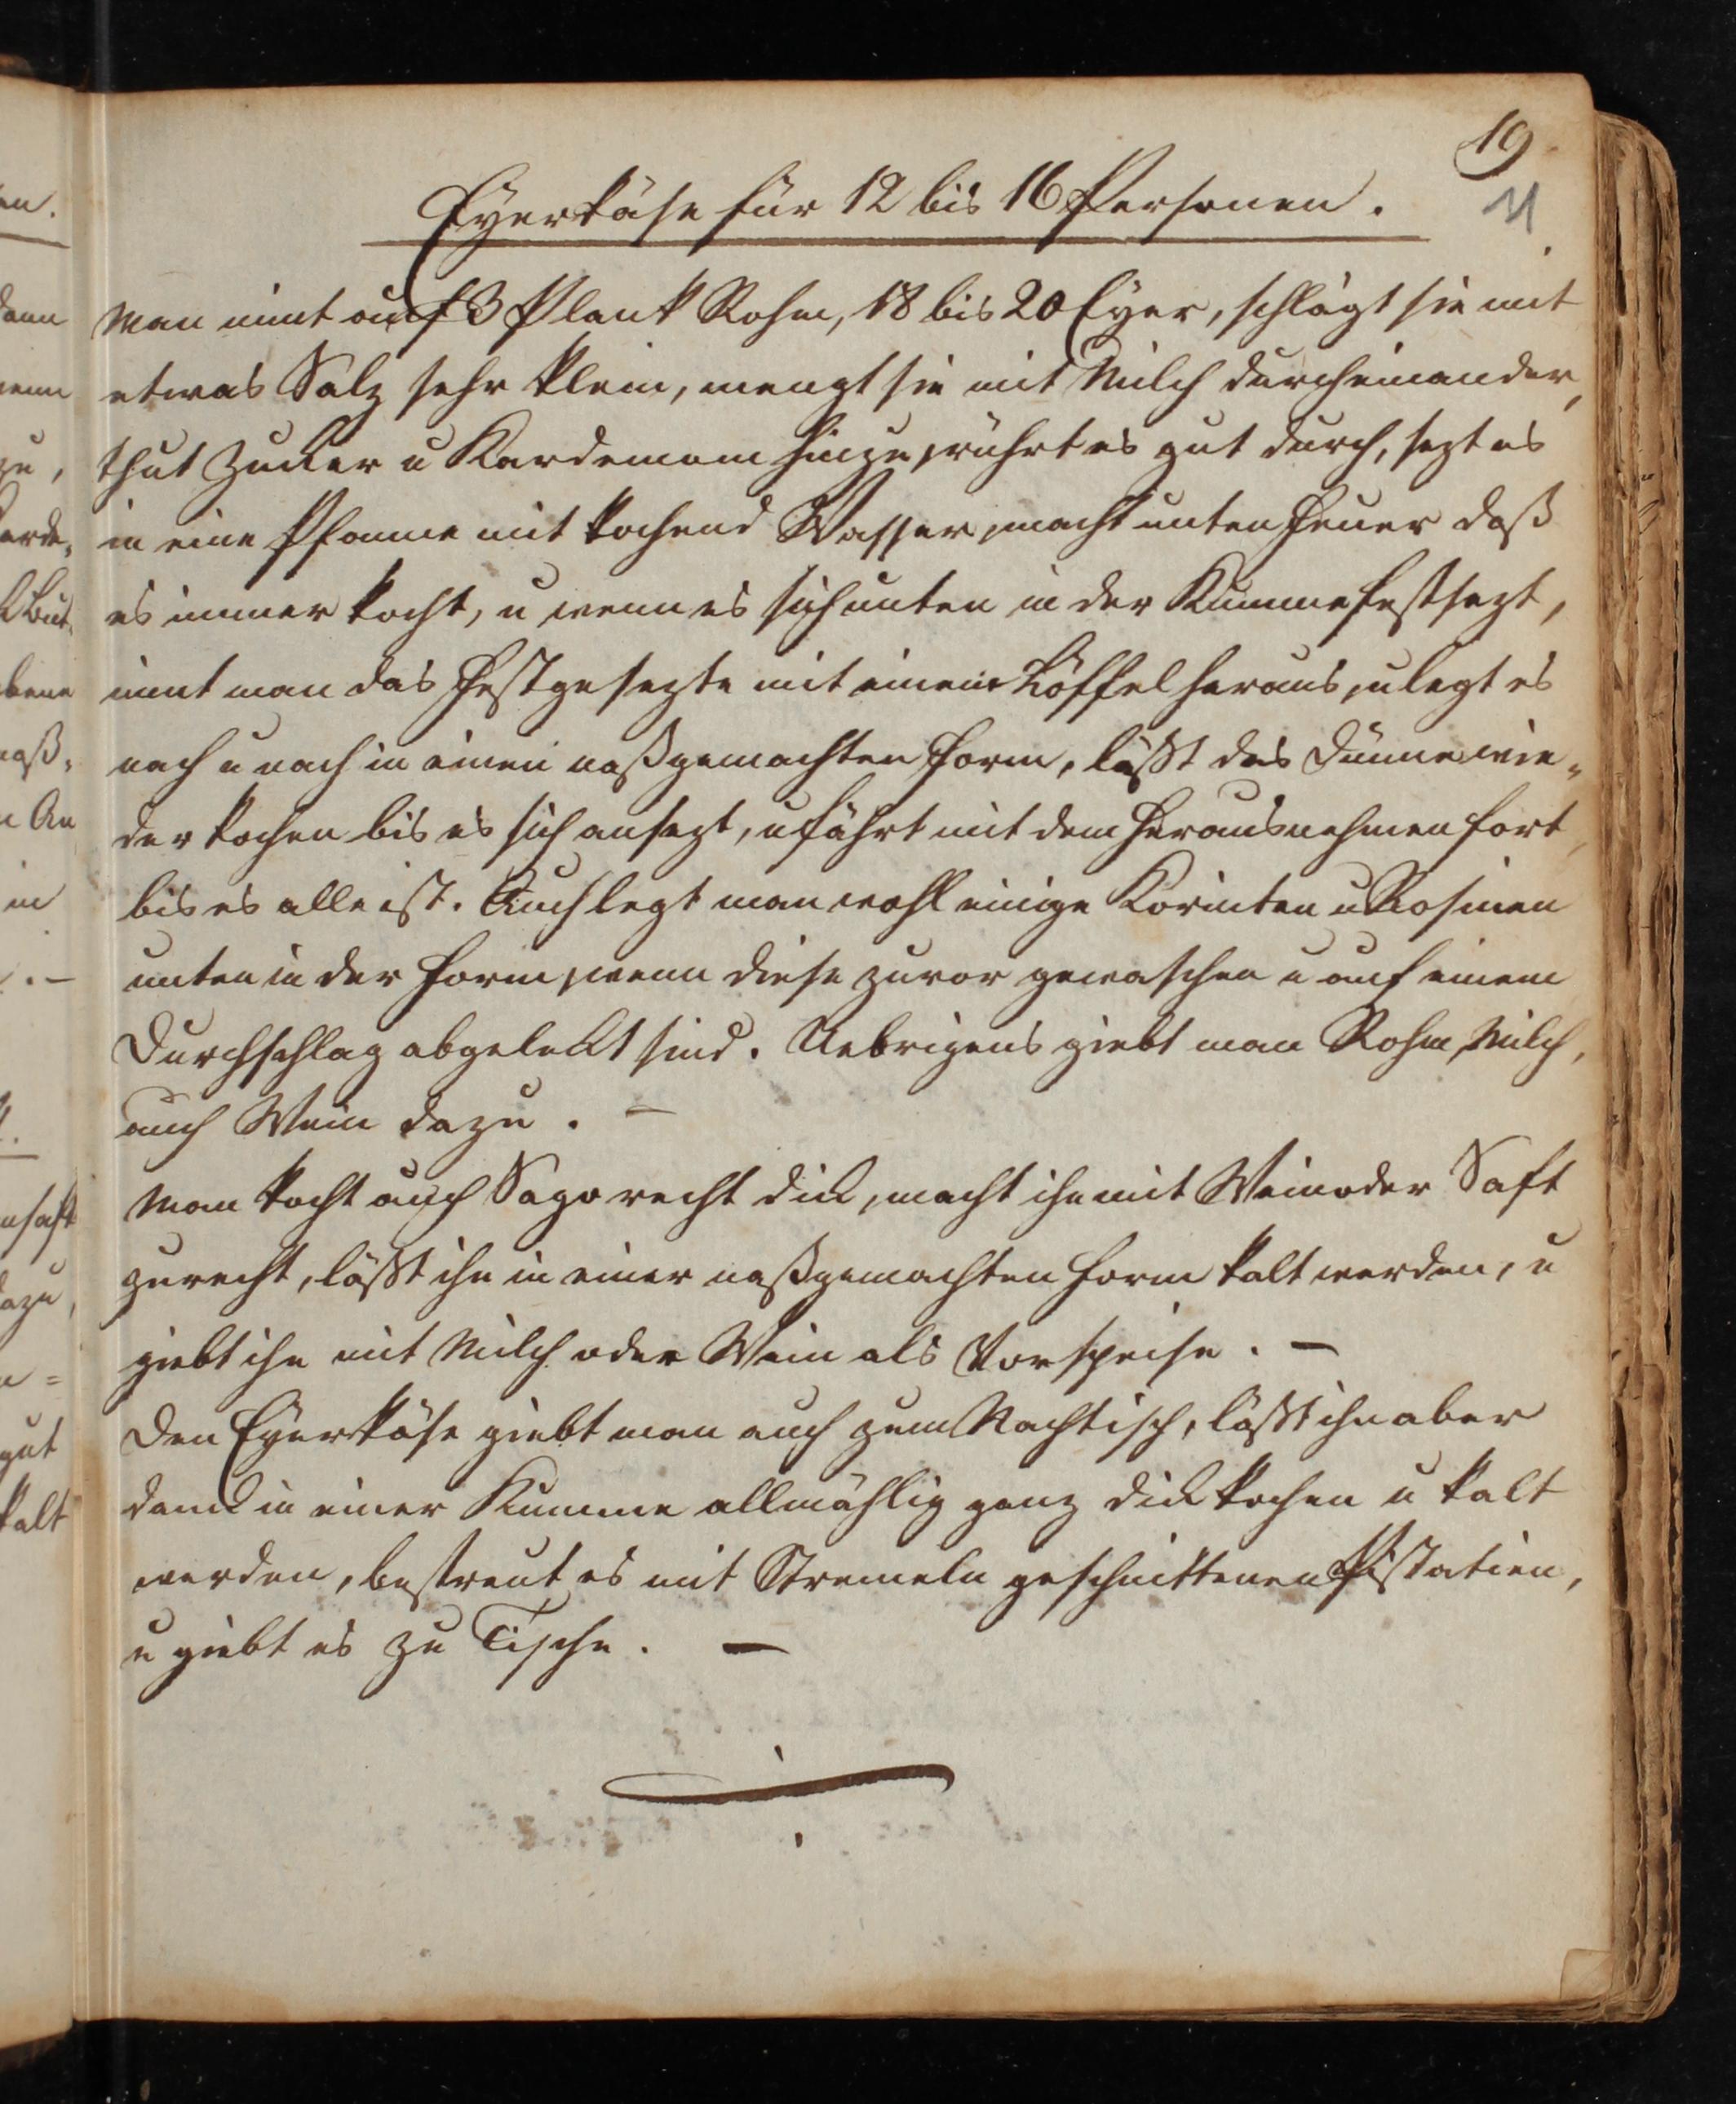 19
11
Eyerkäse für 12 bis 16 Personen.
Man nimt auf 3 Plank Rohm, 18 bis 20 Eyer, schlägt sie mit
etwas Salz sehr klein, mengt sie mit Milch durcheinander,
thut Zucker u Kardemom hinzu, rührt es gut durch, sezt es
in eine Pfanne mit kochend Wasser, macht unten Feuer daß
es immer kocht, u wenn es sich unten in der Kumme festsezt,
nimt man das Festgesezte mit einem Löffel heraus, u legt es
nach u nach in einen naßgemachten Form, läßt das Dünne wie-
der kochen bis es sich ansezt, u fährt mit dem Herausnehmen fort,
bis es alle ist. Auch legt man wohl einige Korinten u Rosinen
unten in der Form, wenn diese zuvor gewaschen u auf einem
Durchschlag abgelekt sind. Uebrigens giebt man Rohm, Milch,
auch Wein dazu. –
Man kocht auch Sago recht dick, macht ihn mit Wein oder Saft
zurecht, läßt ihn in einer naßgemachten Form kalt werden, u
giebt ihn mit Milch oder Wein als Vorspeise. –
Den Eyerkäse giebt man auch zum Nachtisch, läßt ihn aber
dann in einer Kumme allmählig ganz dick kochen u kalt
werden, bestreut es mit Stremeln geschnittenen Pistatien,
u giebt es zu Tische. –